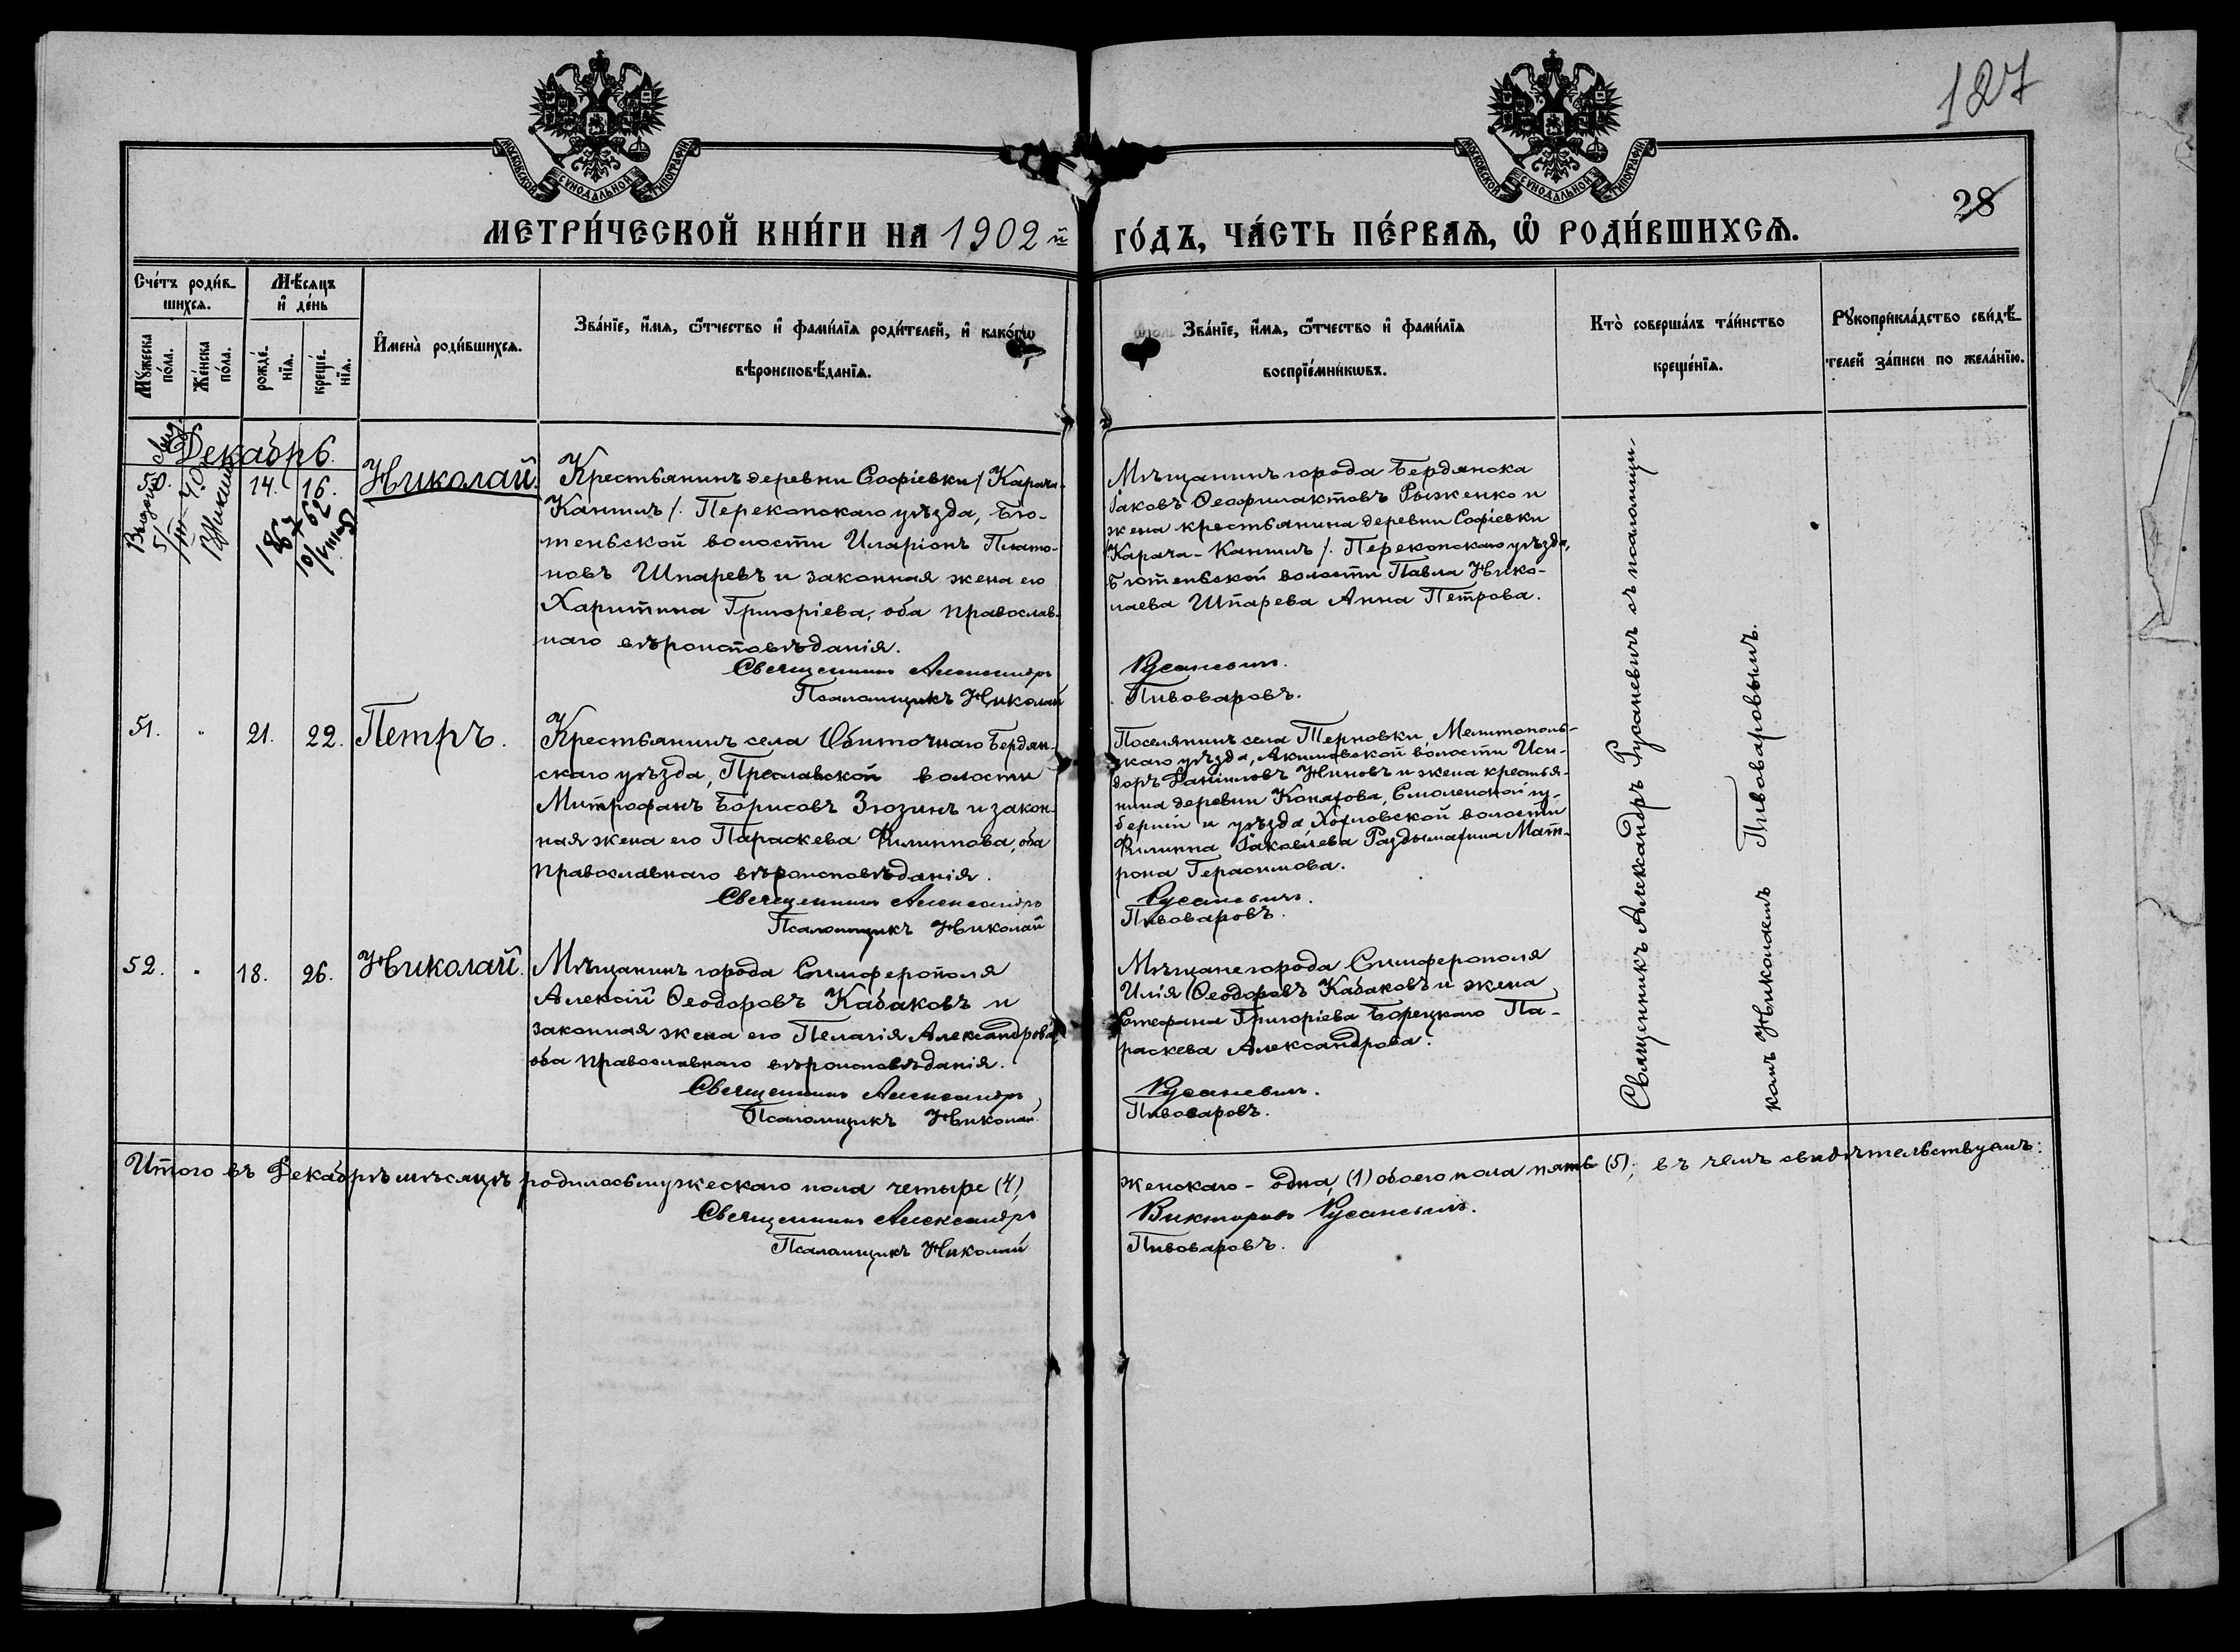 127
28
МОСКОВСКОЙ СѴНОДАЛЬНОЙ ТИПОГРАФІИ
МОСКОВСКОЙ СѴНОДАЛЬНОЙ ТИПОГРАФІИ
МЕТРИ́ЧЕСКОЙ КНИ́ГИ НА 1902 й ГО́ДЪ, ЧА́СТЬ ПЕ́РВАѦ, Ѡ҆ РОДИ́ВШИХСѦ.
Сче́тъ роди́в-
шихсѧ.
Мꙋ́жеска по́ла.
Же́нска по́ла.
Мѣ́сѧцъ
и҆ де́нь
рожде́-
нїѧ.
креще́-
нїѧ.
И҆мена̀ роди́вшихсѧ.
Зва́нїе, и҆́мѧ, ѻ҆́тчество и҆ фами́лїѧ роди́телей, и҆ како́гѡ
вѣроисповѣ́данїѧ.
Зва́нїе, и҆́мѧ, ѻ҆́тчество и҆ фами́лїѧ
воспрїе́мникѡвъ.
Кто̀ соверша́лъ та́инство
креще́нїѧ.
Рꙋкоприкла́дство свидѣ́-
телей за́писи по жела́нїю.
Декабрь.
50.
14.
16.
Николай.
Крестьянинъ деревни Софіевки /Карача-
Кангилъ/. Перекопскаго уѣзда, Бю-
теньской волости Иларіонъ Плато-
новъ Шпаревъ и законная жена его
Харитина Григоріева, оба православ-
наго вѣроисповѣданія.
Священникъ Александръ
Псаломщикъ Николай
Мѣщанинъ города Бердянска
Іаковъ Ѳеофилактовъ Рыженко и
жена крестьянина деревни Софіевки
/Карача-Кангилъ/. Перекопскаго уѣзда,
Бютеньской волости Павла Нико-
лаева Шпарева Анна Петрова.
Русаневичъ.
Пивоваровъ.
51.
"
21.
22.
Петръ.
Крестьянинъ села Обиточнаго Бердян-
скаго уѣзда, Преславской волости
Митрофанъ Борисовъ Зюзинъ и закон-
ная жена его Параскева Филиппова, оба
православнаго вѣроисповѣданія.
Священникъ Александръ
Псаломщикъ Николай
Поселянинъ села Терновки, Мелитополь-
скаго уѣзда, Акимовской волости Иси-
доръ Даніиловъ и жена крестья-
нина деревни Смоленской гу-
берніи и уѣзда волости
Филиппа Іаковлева Мат-
рона Герасимова.
Русаневичъ.
Пивоваровъ.
52.
"
18.
26.
Николай.
Мѣщанинъ города Симферополя
Алексій Ѳеодоровъ Кабаковъ и
законная жена его Пелагія Александрова,
оба православнаго вѣроисповѣданія.
Священникъ Александръ
Псаломщикъ Николай
Мѣщане города Симферополя
Илія Ѳеодоровъ Кабаковъ и жена
Стефана Григоріева Борецкаго Па-
раскева Александрова.
Русаневичъ.
Пивоваровъ.
Священникъ Александръ Русаневичъ съ псаломщи-
комъ Николаемъ Пивоваровымъ.
Итого въ Декабрѣ мѣсяцѣ родилось мужескаго пола четыре (4), женскаго - одна, (1) обоего пола пять (5); въ чемъ свидѣтельствуемъ:
Священникъ Александръ Викторовъ Русаневичъ.
Псаломщикъ Николай Пивоваровъ.